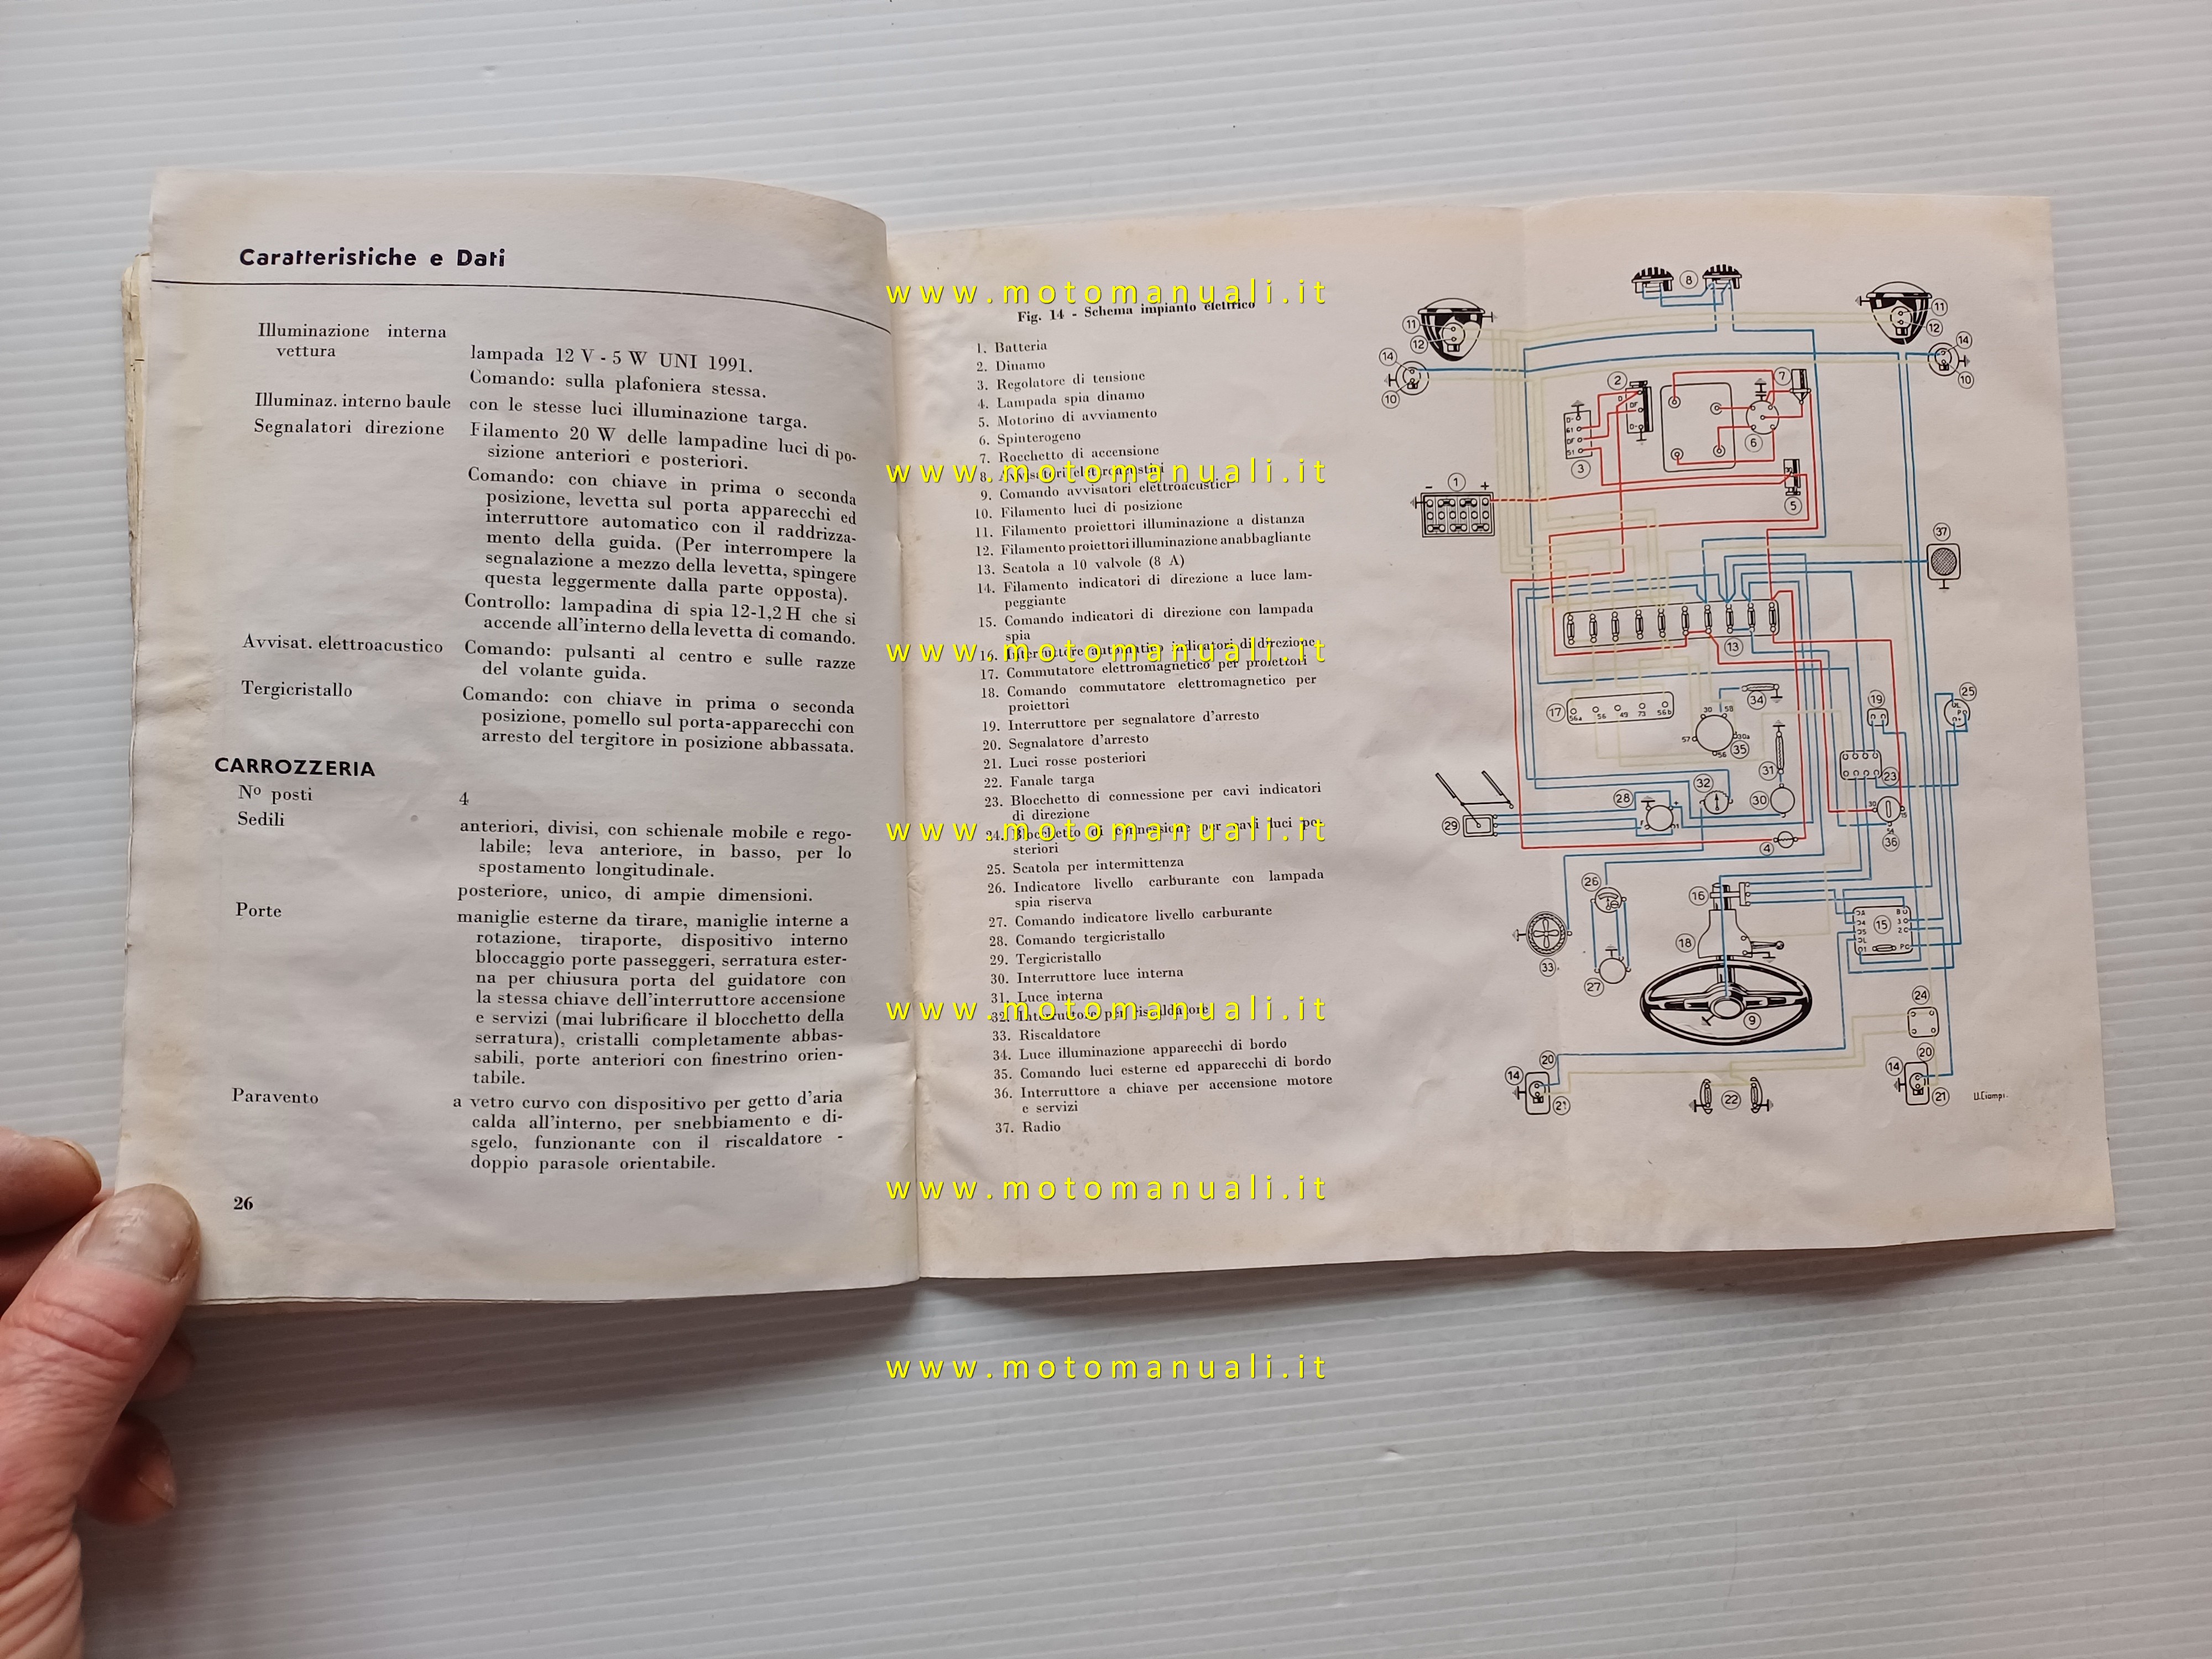 Caratteristiche e Dati
Illuminazione interna
vettura
lampada 12 V - 5 W UNI 1991.
Comando: sulla plafoniera stessa.
Illuminaz. interno baule
con le stesse luci illuminazione targa.
Segnalatori direzione
Filamento 20 W delle lampadine luci di po-
sizione anteriori e posteriori.
Comando: con chiave in prima o seconda
posizione, levetta sul porta apparecchi ed
interruttore automatico con il raddrizza-
mento della guida. (Per interrompere la
segnalazione a mezzo della levetta, spingere
questa leggermente dalla parte opposta).
Controllo: lampadina di spia 12-1,2 H che si
accende all'interno della levetta di comando.
Avvisat. elettroacustico
Comando: pulsanti al centro e sulle razze
del volante guida.
Tergicristallo
Comando: con chiave in prima o seconda
posizione, pomello sul porta-apparecchi con
arresto del tergitore in posizione abbassata.
CARROZZERIA
Nº posti
4
Sedili
anteriori, divisi, con schienale mobile e rego-
labile; leva anteriore, in basso, per lo
spostamento longitudinale.
posteriore, unico, di ampie dimensioni.
Porte
maniglie esterne da tirare, maniglie interne a
rotazione, tiraporte, dispositivo interno
bloccaggio porte passeggeri, serratura ester-
na per chiusura porta del guidatore con
la stessa chiave dell'interruttore accensione
e servizi (mai lubrificare il blocchetto della
serratura), cristalli completamente abbas-
sabili, porte anteriori con finestrino orien-
tabile.
Paravento
a vetro curvo con dispositivo per getto d'aria
calda all'interno, per snebbiamento e di-
sgelo, funzionante con il riscaldatore -
doppio parasole orientabile.
26
www.motomanuali.it
Fig. 14 - Schema impianto elettrico
1. Batteria
2. Dinamo
3. Regolatore di tensione
4. Lampada spia dinamo
5. Motorino di avviamento
6. Spinterogeno
7. Rocchetto di accensione
www.motomanuali.it
8. Avvisatori elettroacustici
9. Comando avvisatori elettroacustici
10. Filamento luci di posizione
11. Filamento proiettori illuminazione a distanza
12. Filamento proiettori illuminazione anabbagliante
13. Scatola a 10 valvole (8 A)
14. Filamento indicatori di direzione a luce lam-
peggiante
15. Comando indicatori di direzione con lampada
spia
www.motomanuali.it
16. Interruttore automatico indicatori di direzione
17. Commutatore elettromagnetico per proiettori
18. Comando commutatore elettromagnetico per
proiettori
19. Interruttore per segnalatore d'arresto
20. Segnalatore d'arresto
21. Luci rosse posteriori
22. Fanale targa
23. Blocchetto di connessione per cavi indicatori
di direzione
www.motomanuali.it
24. Blocchetto di connessione per cavi luci po-
steriori
25. Scatola per intermittenza
26. Indicatore livello carburante con lampada
spia riserva
27. Comando indicatore livello carburante
28. Comando tergicristallo
29. Tergicristallo
30. Interruttore luce interna
31. Luce interna
www.motomanuali.it
32. Interruttore per riscaldatore
33. Riscaldatore
34. Luce illuminazione apparecchi di bordo
35. Comando luci esterne ed apparecchi di bordo
36. Interruttore a chiave per accensione motore
e servizi
37. Radio
www.motomanuali.it
www.motomanuali.it
8
11
12
14
10
11
12
14
10
2
D
DF
D-
7
6
D-
61
DF
51
3
30
5
- 1 +
37
13
17
56a 56 49 73 56b
34
30 58
57
30a
56
35
19
25
L
P
+
31
23
32
28
30
29
4
30
15
54
36
26
16
18
27
33
9
15
A
54
S
L
D1
B
3
2
C
PC
24
20
14
21
22
20
14
21
U.Ciampi.